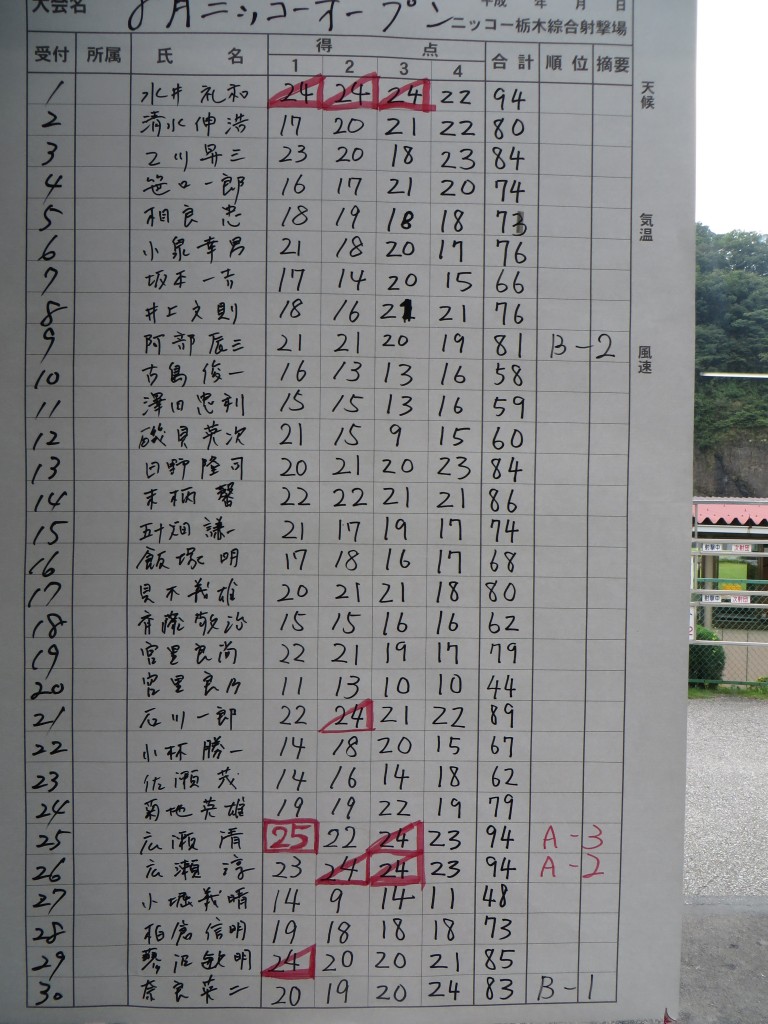 大会名 8月ニッコーオープン 平成 年 月 日
ニッコー栃木綜合射撃場
受付 所属 氏 名 得 点 合計 順位 摘要
1 2 3 4
天候
気温
風速
1 水井礼和 24 24 24 22 94
2 清水伸浩 17 20 21 22 80
3 乙川昇三 23 20 18 23 84
4 笹口一郎 16 17 21 20 74
5 相良忠 18 19 18 18 73
6 小泉幸男 21 18 20 17 76
7 坂本一吉 17 14 20 15 66
8 井上文則 18 16 21 21 76
9 阿部辰三 21 21 20 19 81 B-2
10 古島俊一 16 13 13 16 58
11 澤田忠利 15 15 13 16 59
12 磯貝英次 21 15 9 15 60
13 日野隆司 20 21 20 23 84
14 末柄馨 22 22 21 21 86
15 五十畑謙一 21 17 19 17 74
16 飯塚明 17 18 16 17 68
17 貝木義雄 20 21 21 18 80
18 齊藤敬治 15 15 16 16 62
19 宮里良尚 22 21 19 17 79
20 宮里良乃 11 13 10 10 44
21 石川一郎 22 24 21 22 89
22 小林勝一 14 18 20 15 67
23 佐瀬茂 14 16 14 18 62
24 菊地英雄 19 19 22 19 79
25 広瀬清 25 22 24 23 94 A-3
26 広瀬淳 23 24 24 23 94 A-2
27 小堀義晴 14 9 14 11 48
28 柏倉信明 19 18 18 18 73
29 蓼沼敏明 24 20 20 21 85
30 奈良英二 20 19 20 24 83 B-1